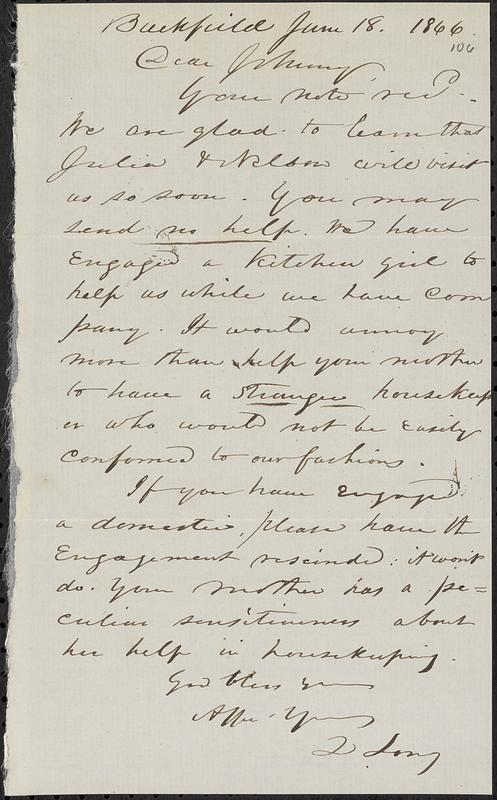 Buckfield June 18. 1866.
106
Dear Johnny
Your note rec'd.
We are glad to learn that
Julia & Nelson will visit
us so soon. You may
send no help. We have
Engaged a kitchen girl to
help us while we have com
pany. It would annoy
more than help your mother
to have a Stranger housekeep
er who would not be easily
conformed to our fashions.
If you have engaged
a domestic, please have the
Engagement rescinded: it won't
do. Your mother has a pe=
culiar sensitiveness about
her help in housekeeping.
God bless you
Affe. Yours
Z Long